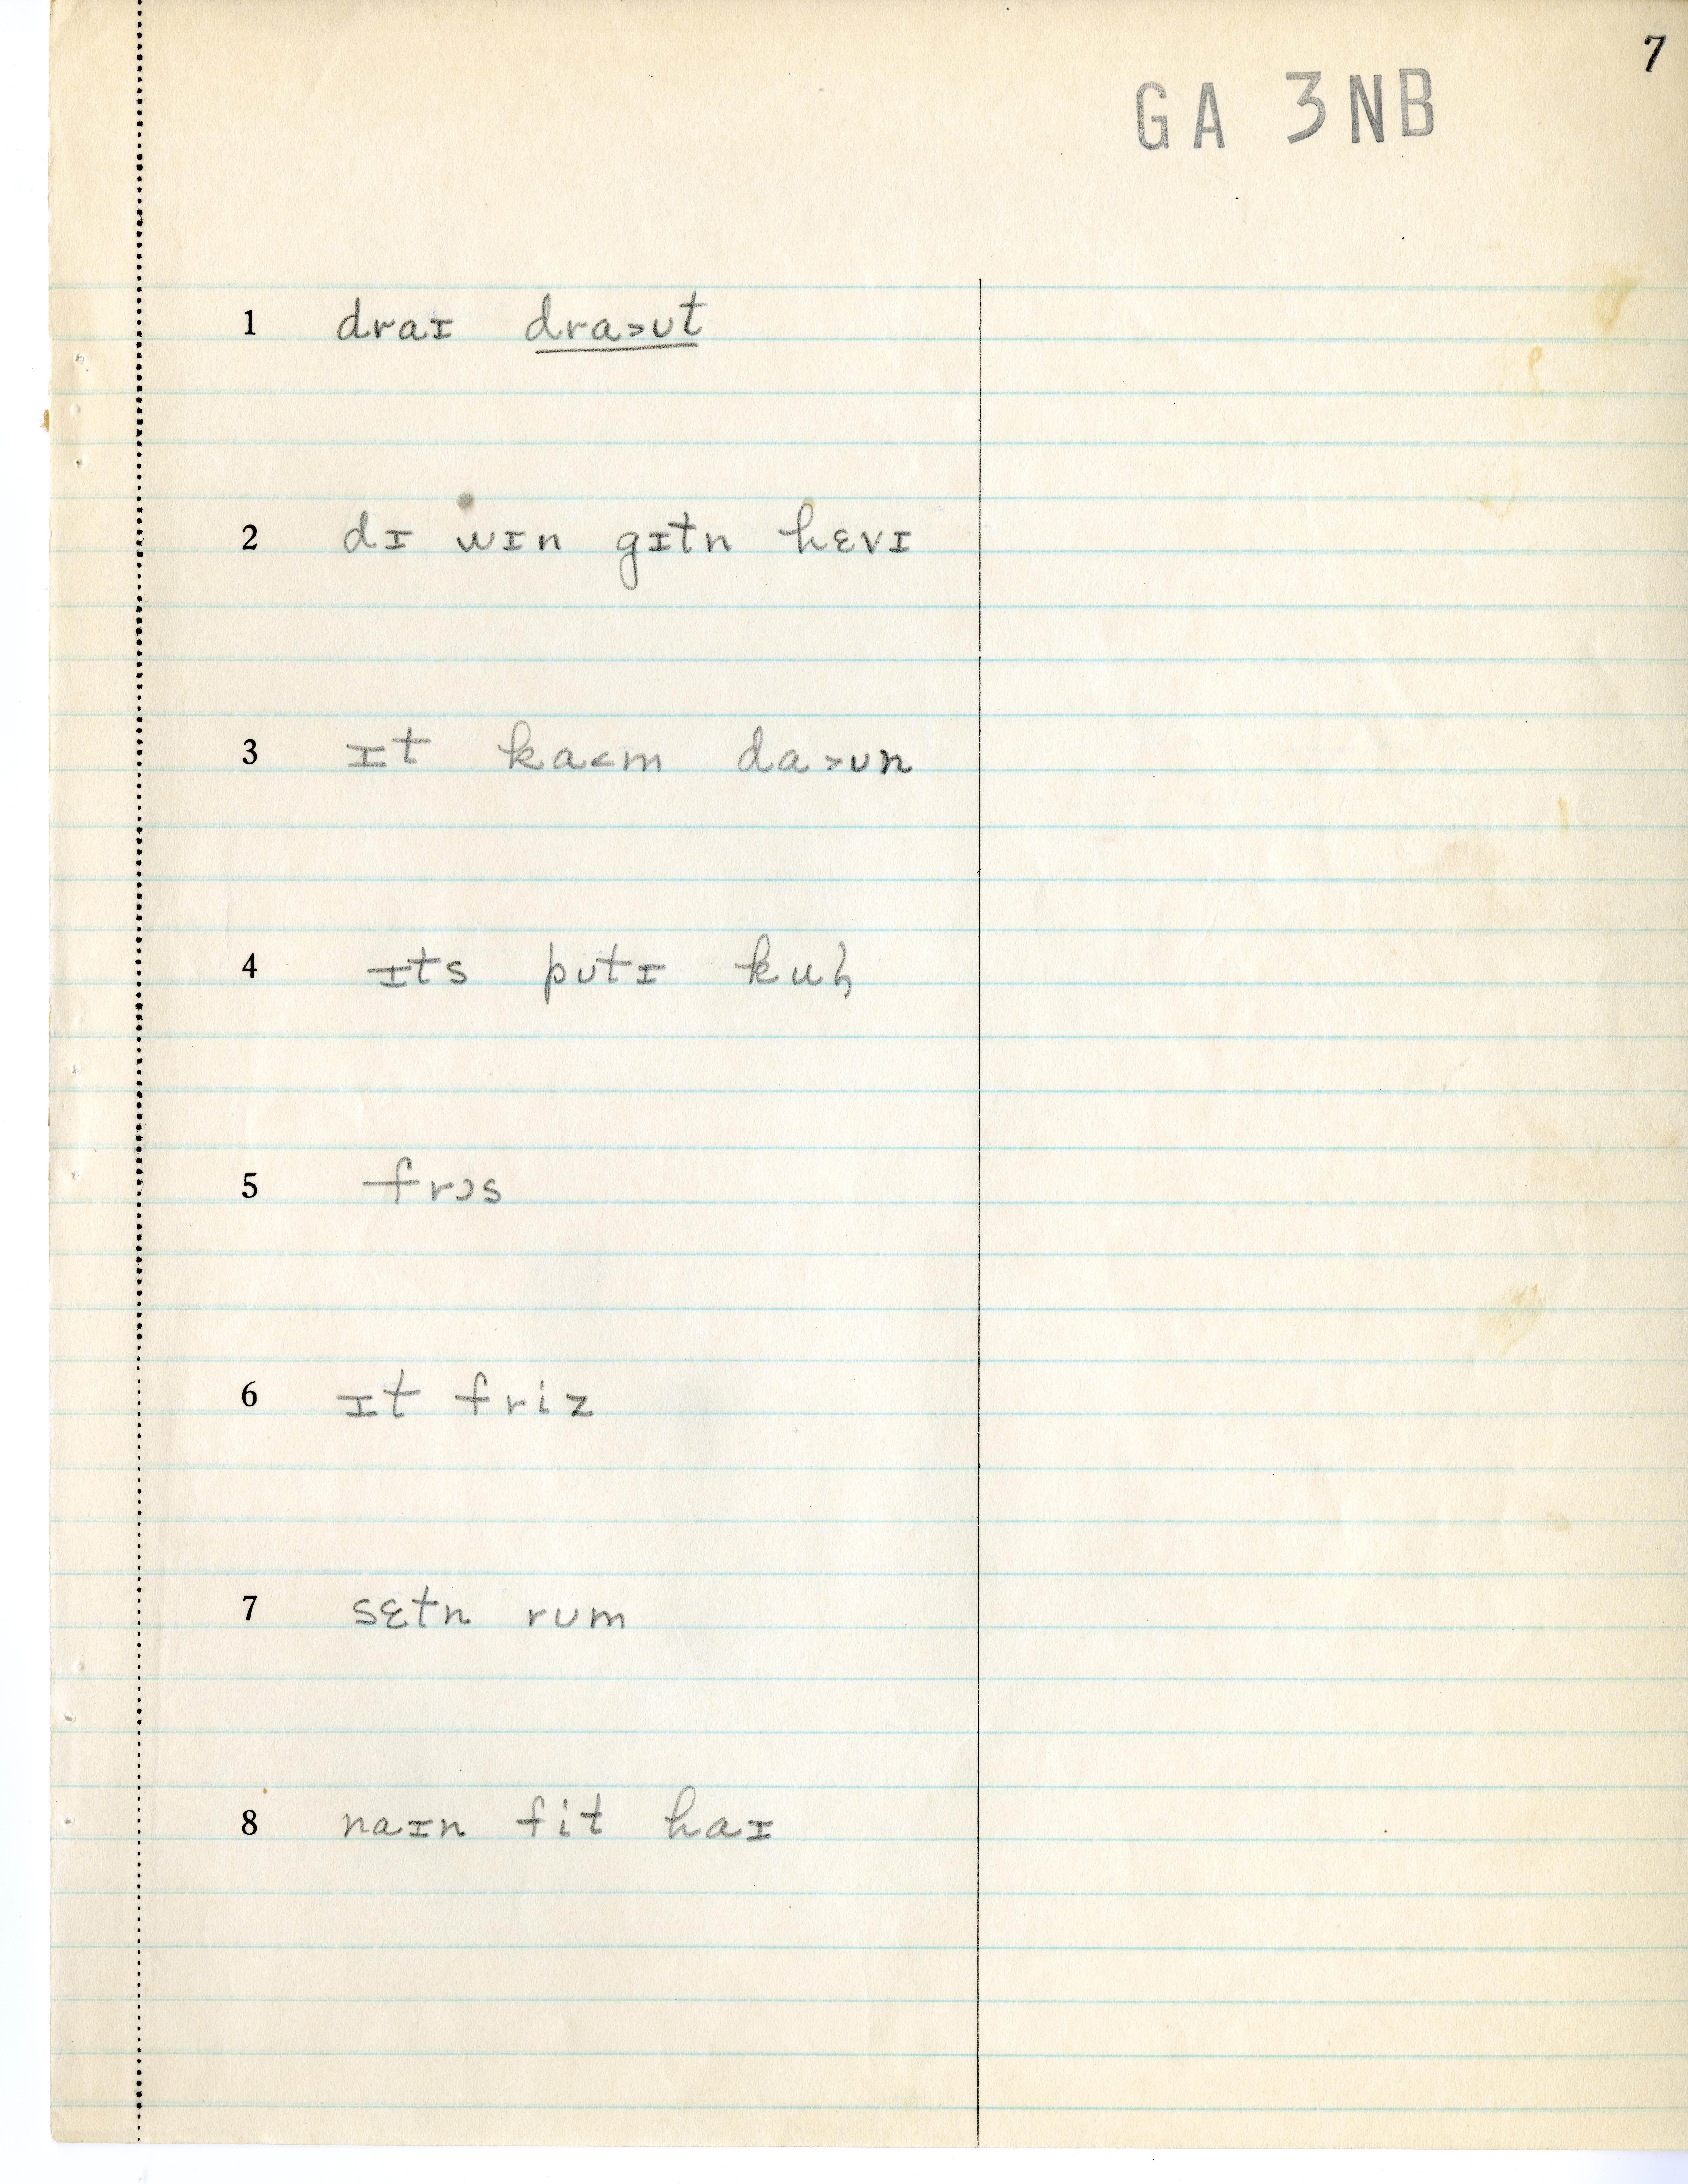 7
GA 3NB
1 draɪ dra>ʊt
2 dɪ wɪn gɪtn hɛvɪ
3 ɪt ka<m da>ʊn
4 ɪts pʊtɪ kuɫ
5 frɔs
6 ɪt friz
7 sɛtn rʊm
8 naɪn fit haɪ